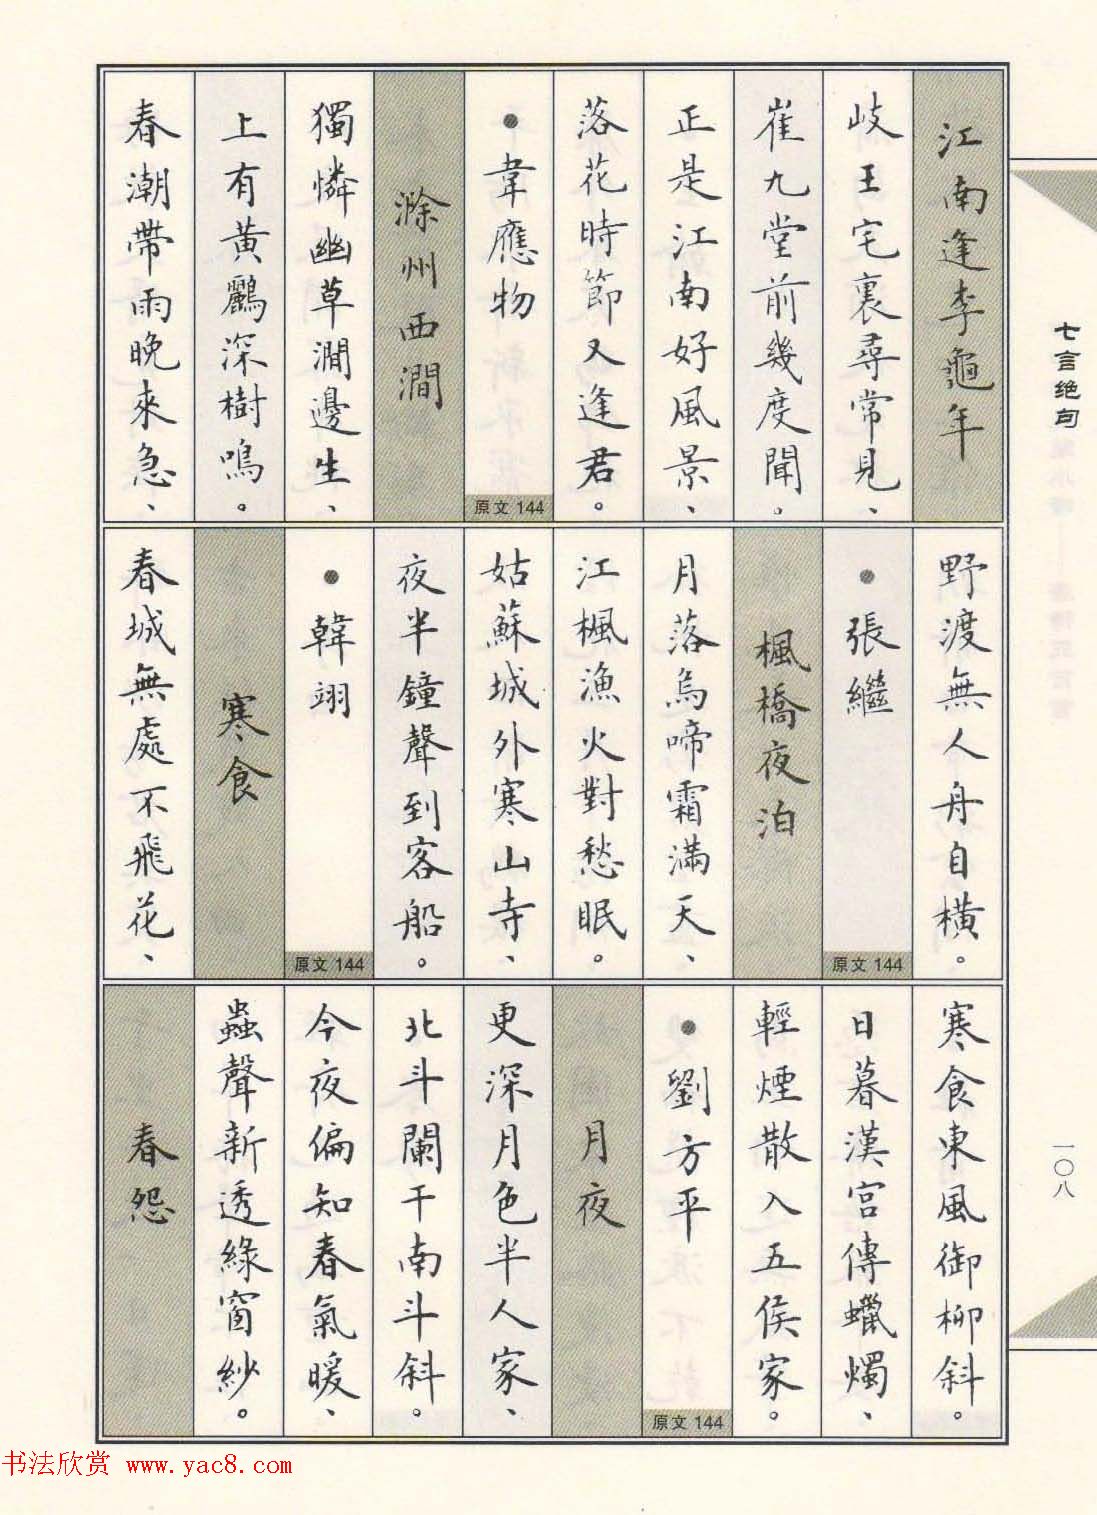 江南逢李龜年
岐王宅裏尋常見、
崔九堂前幾度聞。
正是江南好風景、
落花時節又逢君。
●韋應物
原文144
滁州西澗
獨憐幽草澗邊生、
上有黃鸝深樹鳴。
春潮帶雨晚來急、
野渡無人舟自橫。
●張繼
原文144
楓橋夜泊
月落烏啼霜滿天、
江楓漁火對愁眠。
姑蘇城外寒山寺、
夜半鐘聲到客船。
●韓翃
原文144
寒食
春城無處不飛花、
寒食東風御柳斜。
日暮漢宮傳蠟燭、
輕煙散入五侯家。
●劉方平
原文144
月夜
更深月色半人家、
北斗闌干南斗斜。
今夜偏知春氣暖、
蟲聲新透綠窗紗。
春怨
七言绝句
一〇八
书法欣赏 www.yac8.com